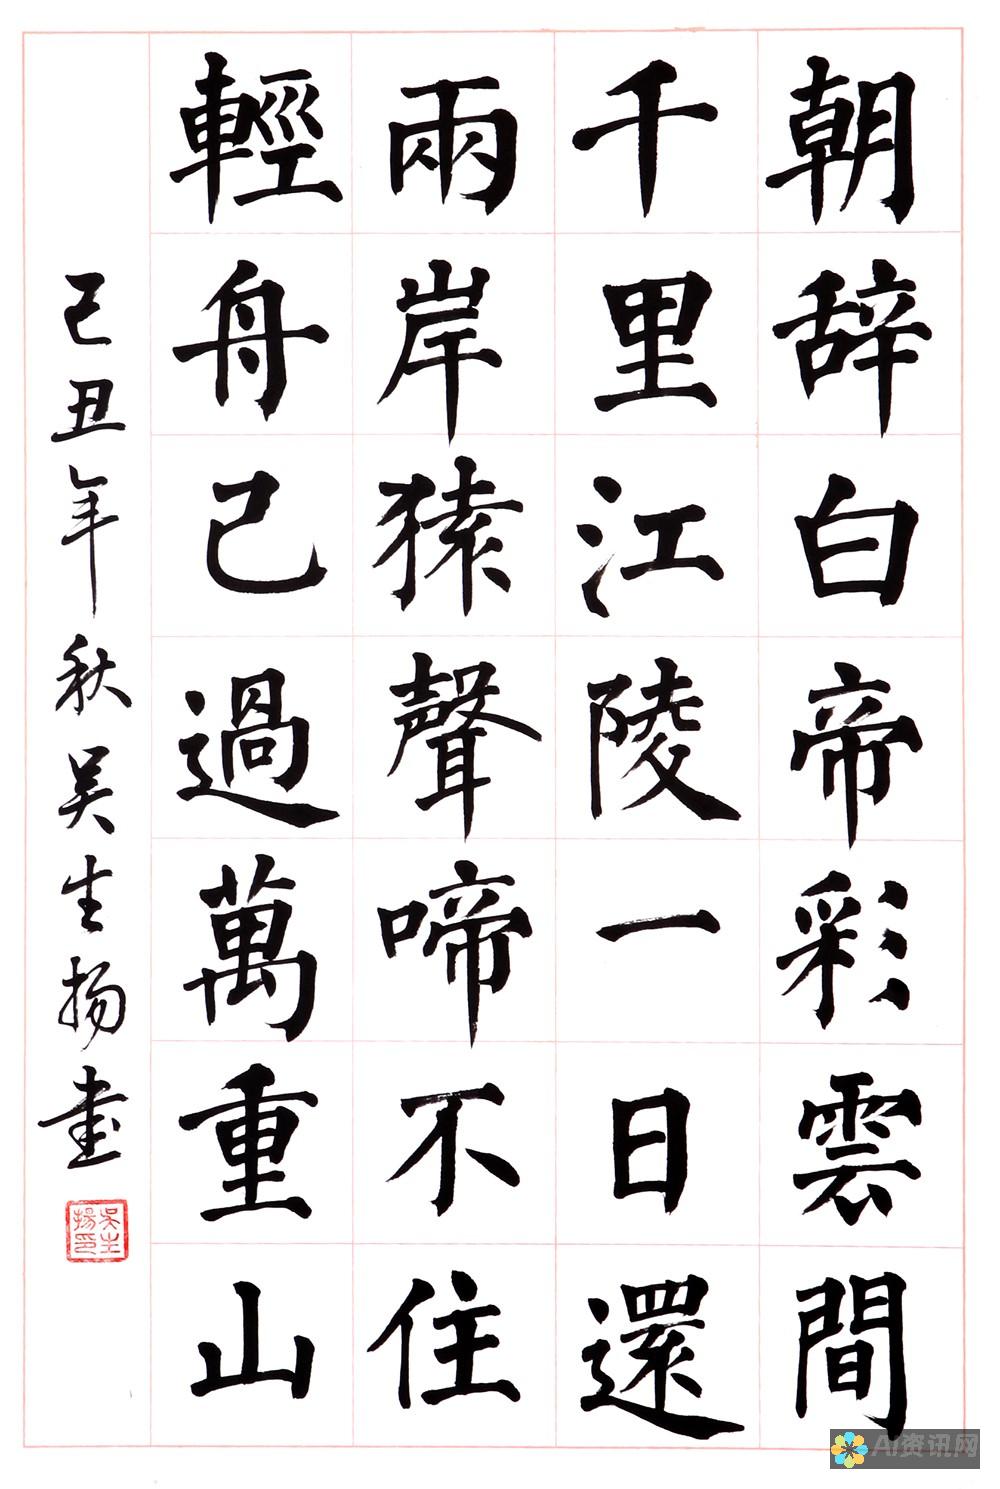 朝辞白帝彩雲間
千里江陵一日還
兩岸猿聲啼不住
輕舟已過萬重山
己丑年秋吴生扬書
吴生揚印
AI资讯网